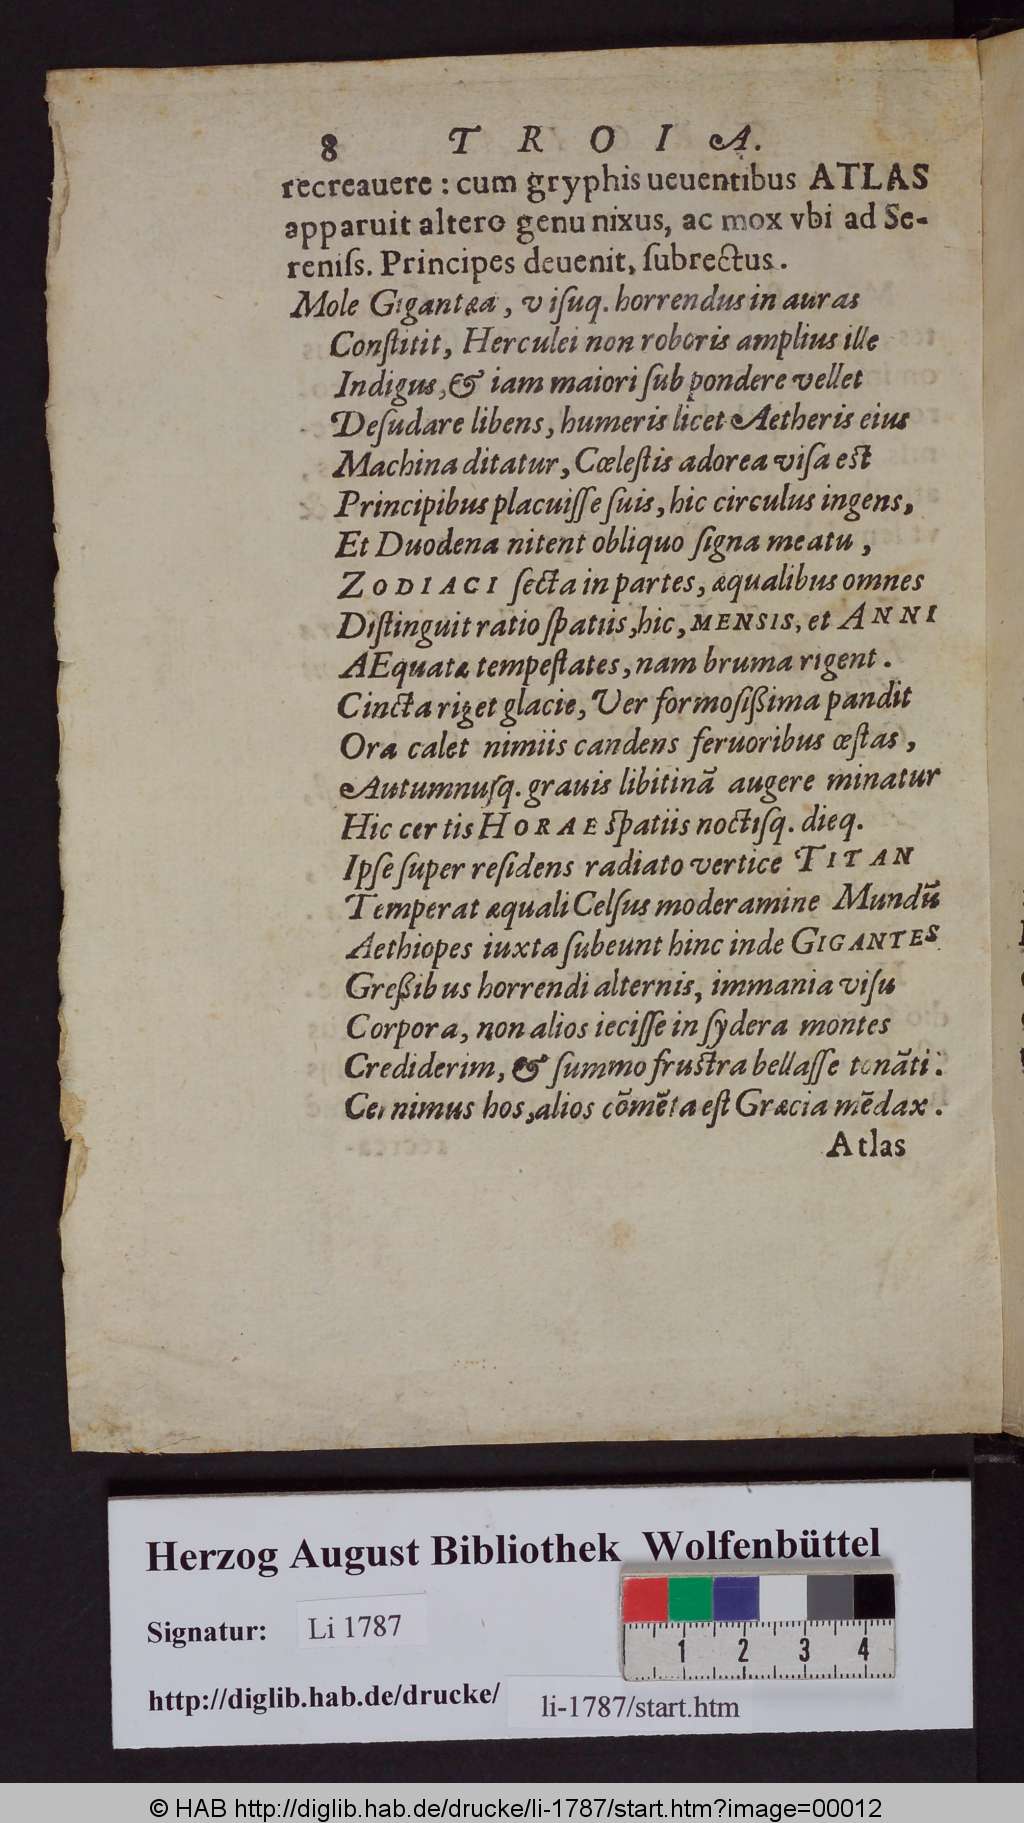 8 TROIA.
recreauere : cum gryphis ueuentibus ATLAS
apparuit altero genu nixus, ac mox vbi ad Se-
reniſs. Principes deuenit, ſubrectus.
Mole Gigantæa, viſuq. horrendus in auras
Conſtitit, Herculei non roboris amplius ille
Indigus, & iam maiori ſub pondere vellet
Deſudare libens, humeris licet Aetheris eius
Machina ditatur, Cœleſtis adorea viſa eſt
Principibus placuiſſe ſuis, hic circulus ingens,
Et Duodena nitent obliquo ſigna meatu,
ZODIACI ſecta in partes, æqualibus omnes
Diſtinguit ratio ſpatiis, hic, MENSIS, et ANNI
AEquatæ tempeſtates, nam bruma rigent.
Cincta riget glacie, Ver formoſißima pandit
Ora calet nimiis candens feruoribus œſtas,
Autumnuſq. grauis libitinã augere minatur
Hic certis HORAE ſpatiis noctiſq. dieq.
Ipſe ſuper reſidens radiato vertice TITAN
Temperat æquali Celſus moderamine Mundũ
Aethiopes iuxta ſubeunt hinc inde GIGANTES
Greßibus horrendi alternis, immania viſu
Corpora, non alios ieciſſe in ſydera montes
Crediderim, & ſummo fruſtra bellaſſe tonãti.
Cernimus hos, alios cõmẽta eſt Græcia mẽdax.
Atlas
Herzog August Bibliothek Wolfenbüttel
Signatur: Li 1787
1 2 3 4
http://diglib.hab.de/drucke/ li-1787/start.htm
© HAB http://diglib.hab.de/drucke/li-1787/start.htm?image=00012